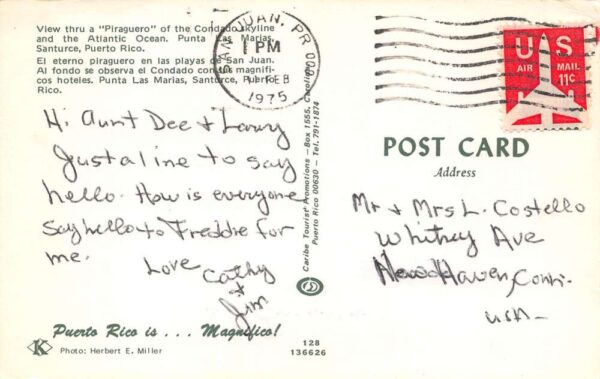 View thru a "Piraguero" of the Condado Skyline
and the Atlantic Ocean. Punta Las Marias,
Santurce, Puerto Rico.
El eterno piraguero en las playas de San Juan.
Al fondo se observa el Condado con sus magnifi-
cos hoteles. Punta Las Marias, Santurce, Puerto
Rico.
SAN JUAN, PR 009
1 PM
FEB
1975
US
AIR MAIL
11¢
Hi Aunt Dee & Larry
Just a line to say
hello. How is everyone
Say hello to Freddie for
me.
Love
Cathy
&
Jim
Caribe Tourist Promotions – Box 1555, Carolina,
Puerto Rico 00630 – Tel. 791-1874
POST CARD
Address
Mr & Mrs L. Costello
Whitney Ave
New Haven, Conn.
USA
Puerto Rico is . . . Magnifico!
K
Photo: Herbert E. Miller
128
136626